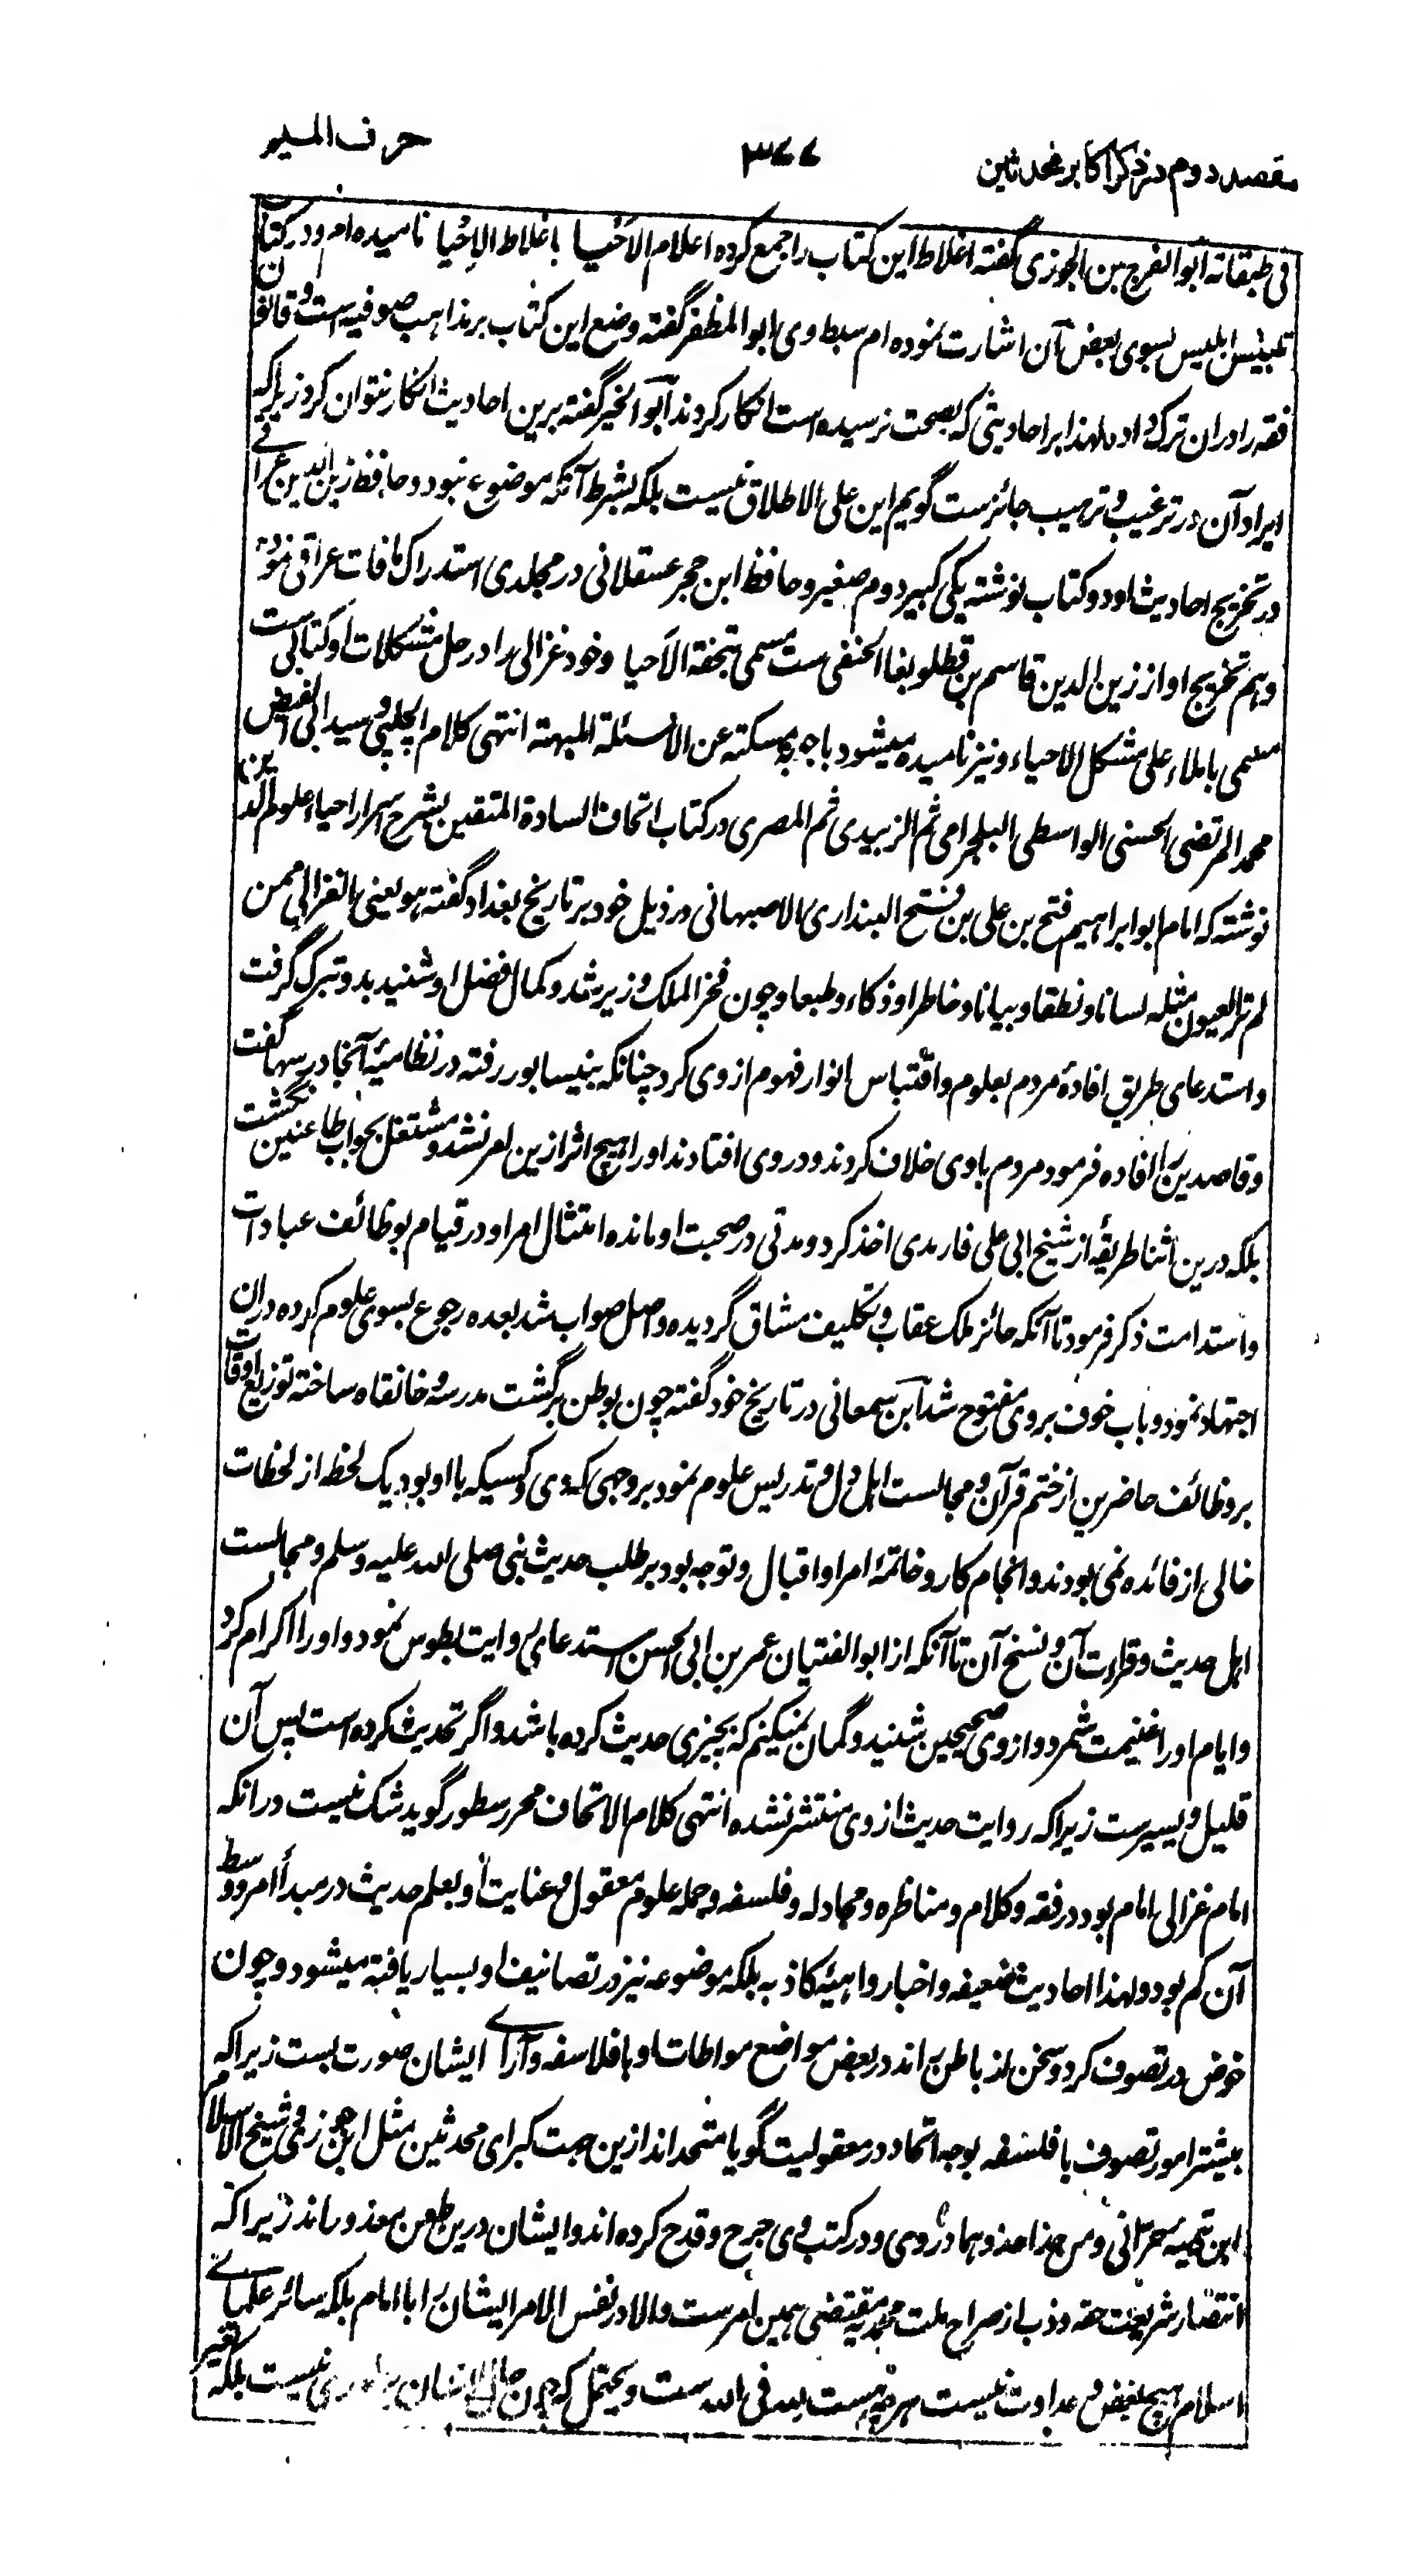 مقصد دوم در ذکر اکابر محدثین
۳۷۷
حرف المیم
فی طبقاته ابوالفرج بن الجوزی گفته اغلاط این کتاب را جمع کرده اعلام الاحیا باغلاط الاحیا نامیده ام و در کتاب
تلبیس ابلیس بسوی بعض آن اشارت نموده ام سبط وی ابوالمظفر گفته وضع این کتاب بر مذاهب صوفیه است و قانون
فقه را دران ترک داده لهذا بر احادیثی که بصحت نرسیده است انکار کردند ابوالخیر گفته برین احادیث انکار نتوان کرد زیراکه
ایراد آن در ترغیب و ترهیب جائزست گویم این علی الاطلاق نیست بلکه بشرط آنکه موضوع نبود و حافظ زین الدین عراقی
در تخریج احادیث او دو کتاب نوشته یکی کبیر دوم صغیر و حافظ ابن حجر عسقلانی در مجلدی استدراک مافات عراقی نموده
و هم تخریج او از زین الدین قاسم بن قطلوبغا الحنفی ست مسمی بتحفة الاحیا و خود غزالی را در حل مشکلات او کتابی ست
مسمی باملاء علی مشکل الاحیاء و نیز نامیده میشود باجوبه مسکته عن الاسئلة المبهته انتهی کلام الچلپی و سید ابی الفیض
محمد المرتضی الحسنی الواسطی البلجرامی ثم الزبیدی ثم المصری در کتاب اتحاف السادة المتقین بشرح اسرار احیاء علوم الدین
نوشته که امام ابو ابراهیم فتح بن علی بن فتح البنداری الاصبهانی در ذیل خود بر تاریخ بغداد گفته هو یعنی الغزالی ممن
لم تر العیون مثله لسانا و نطقا و بیانا و خاطرا و ذکاء و طبعا و چون فخر الملک وزیر شد و کمال فضل او شنید بدو تبرک گرفت
و استدعای طریق افادهٔ مردم بعلوم و اقتباس انوار فهوم از وی کرد چنانکه بنیسابور رفته در نظامیهٔ آنجا درسها گفت
و قاصدین را افاده فرمود مردم باوی خلاف کردند و در وی افتادند او را هیچ اثر ازین امر نشد و مشتغل بجواب طاعنین نگشت
بلکه درین اثنا طریقه از شیخ ابی علی فارمدی اخذ کرد و مدتی در صحبت او مانده امتثال امر او در قیام بوظائف عبادات
و استدامت ذکر فرمود تا آنکه جائز ملک عقاب و تکلیف مشاق گردیده واصل صواب شد بعده رجوع بسوی علوم کرده دران
اجتهاد نمود و باب خوف بروی مفتوح شد ابن سمعانی در تاریخ خود گفته چون بوطن برگشت مدرسه و خانقاه ساخته توزیع اوقات
بر وظائف حاضرین از ختم قرآن و مجالست اهل دل و تدریس علوم نمود بروجهی که وی و کسیکه با او بود یک لحظه از لحظات
خالی از فائده نمی بودند و انجام کار و خاتمهٔ امر او اقبال و توجه بود بر طلب حدیث نبی صلی الله علیه وسلم و مجالست
اهل حدیث و قراءت آن و نسخ آن تا آنکه از ابوالفتیان عمر بن ابی الحسن استدعای روایت بطوس نمود و او را اکرام کرد
و ایام او را غنیمت شمرد و از وی صحیحین شنید و گمان نمیکنم که بچیزی حدیث کرده باشد و اگر تحدیث کرده است پس آن
قلیل و یسیرست زیراکه روایت حدیث از وی منتشر نشده انتهی کلام الاتحاف محرر سطور گوید شک نیست درانکه
امام غزالی امام بود در فقه و کلام و مناظره و مجادله و فلسفه و جمله علوم معقول و عنایت او بعلم حدیث در مبدأ امر و وسط
آن کم بود و لهذا احادیث ضعیفه و اخبار واهیهٔ کاذبه بلکه موضوعه نیز در تصانیف او بسیار یافته میشود و چون
خوض در تصوف کرد و سخن از باطن راند در بعض مواضع مواطات او با فلاسفه و آرای ایشان صورت بست زیراکه
بیشتر امور تصوف با فلسفه بوجه اتحاد در معقولیت گویا متحد اند ازین جهت کبرای محدثین مثل ابن جوزی و شیخ الاسلام
ابن تیمیه حرانی و من حذا حذوهما در وی و در کتب وی جرح و قدح کرده اند و ایشان درین طعن معذور اند زیراکه
انتصار شریعت حقه و ذب از صراح ملت محمدیه مقتضی همین امرست والا در نفس الامر ایشان را با امام بلکه سائر علمای
اسلام هیچ بغض و عداوت نیست هرچه هست لله فی الله ست و یحتمل که چون حال ایشان نیست بلکه تغیر